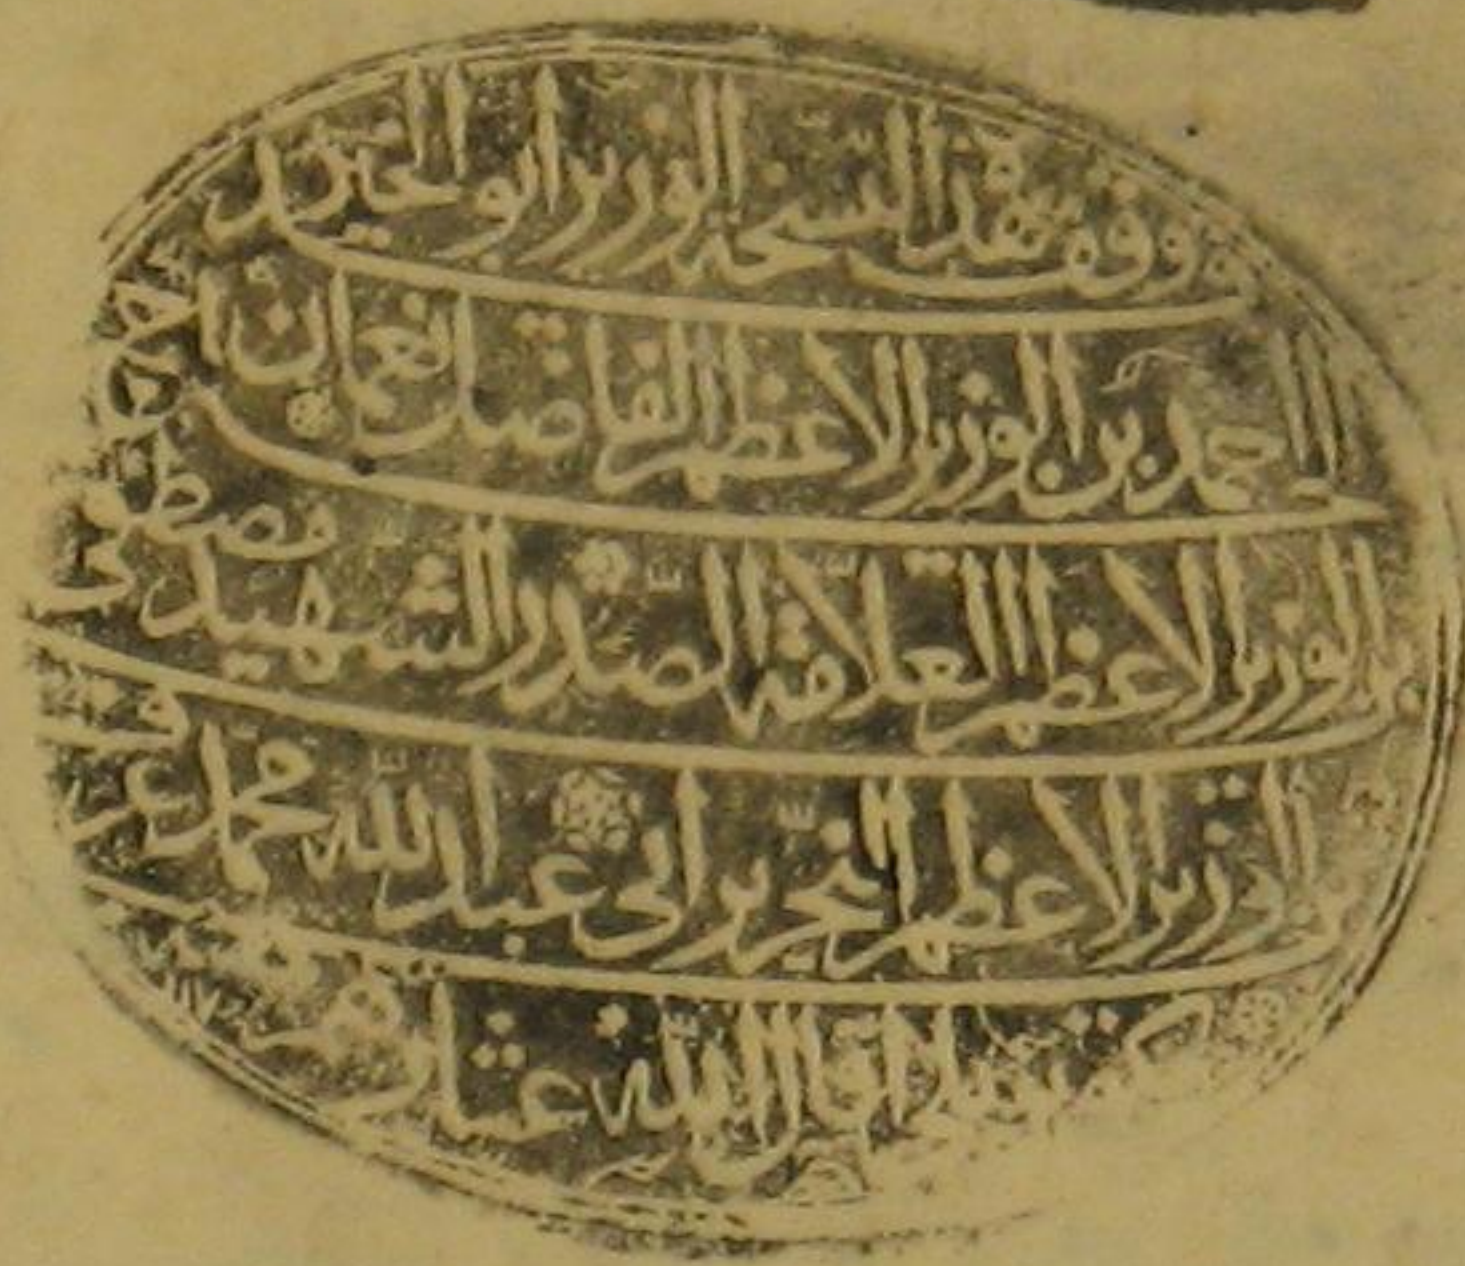 وقف هذه النسخة الوزير ابو الخير
الحاج احمد بن الوزير الاعظم الفاضل نعمان
بن الوزير الاعظم العلامة الصدر الشهيد مصطفى
بن الوزير الاعظم النحرير ابي عبد الله محمد عرف
اقال الله عثارهم